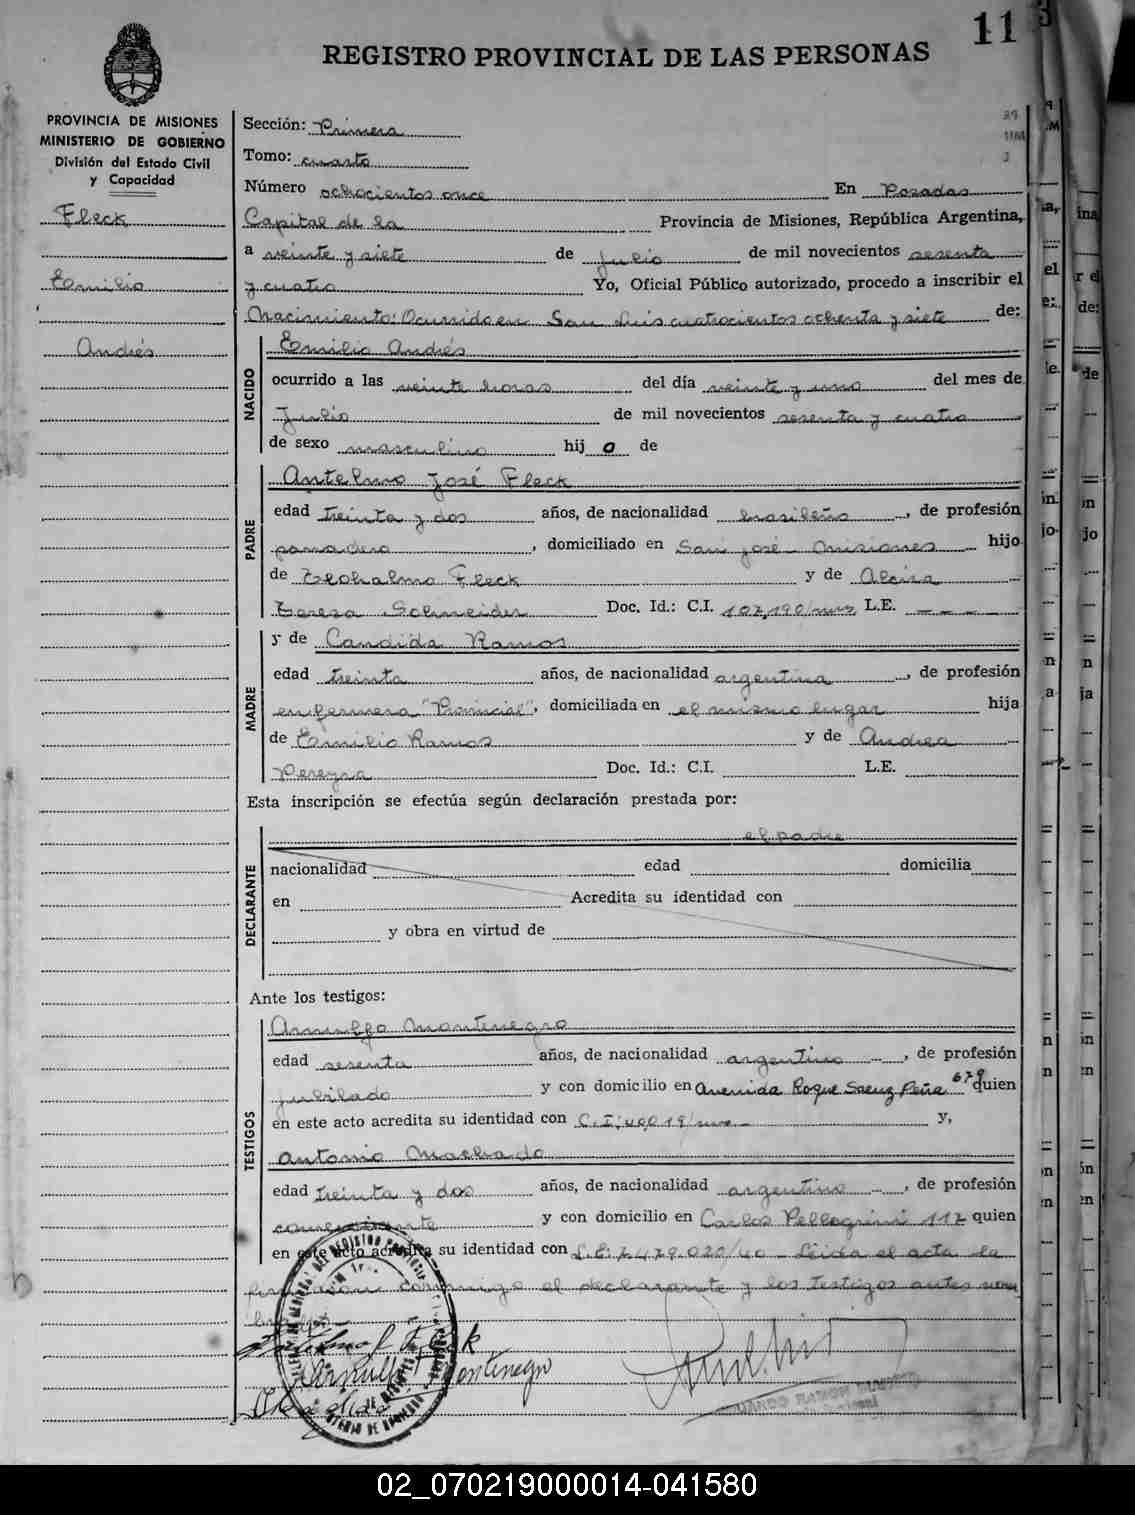 11
3
REGISTRO PROVINCIAL DE LAS PERSONAS
PROVINCIA DE MISIONES
MINISTERIO DE GOBIERNO
División del Estado Civil
y Capacidad
Fleck
Emilio
Andrés
Sección: Primera
Tomo: cuarto
Número ochocientos once En Posadas
Capital de la Provincia de Misiones, República Argentina,
a veinte y siete de Julio de mil novecientos sesenta
y cuatro Yo, Oficial Público autorizado, procedo a inscribir el
Nacimiento: Ocurrido en San Luis cuatrocientos ochenta y siete de:
NACIDO
Emilio Andrés
ocurrido a las veinte horas del día veinte y uno del mes de
Julio de mil novecientos sesenta y cuatro
de sexo masculino hij o de
PADRE
Antelmo José Fleck
edad treinta y dos años, de nacionalidad brasileño, de profesión
panadero, domiciliado en San José - Misiones hijo
de Fleck y de Alcira
Teresa Schneider Doc. Id.: C.I. 107,190/mns L.E. – – – –
MADRE
y de Candida Ramos
edad treinta años, de nacionalidad argentina, de profesión
enfermera "Provincial", domiciliada en el mismo lugar hija
de Emilio Ramos y de Andrea
Pereyra Doc. Id.: C.I. L.E.
Esta inscripción se efectúa según declaración prestada por:
DECLARANTE
el padre
nacionalidad edad domicilia
en Acredita su identidad con
y obra en virtud de
Ante los testigos:
TESTIGOS
Arnulfo Montenegro
edad sesenta años, de nacionalidad argentino, de profesión
jubilado y con domicilio en Avenida Roque Saenz Peña 679 quien
en este acto acredita su identidad con C.I: 40,019/mns - y,
Antonio Machado
edad treinta y dos años, de nacionalidad argentino, de profesión
comerciante y con domicilio en Carlos Pellegrini 112 quien
en este acto acredita su identidad con L.E: 7.479.020/40 - Leida el acta la
firmaron conmigo el declarante y los testigos antes
Arnulfo Montenegro
02_070219000014-041580